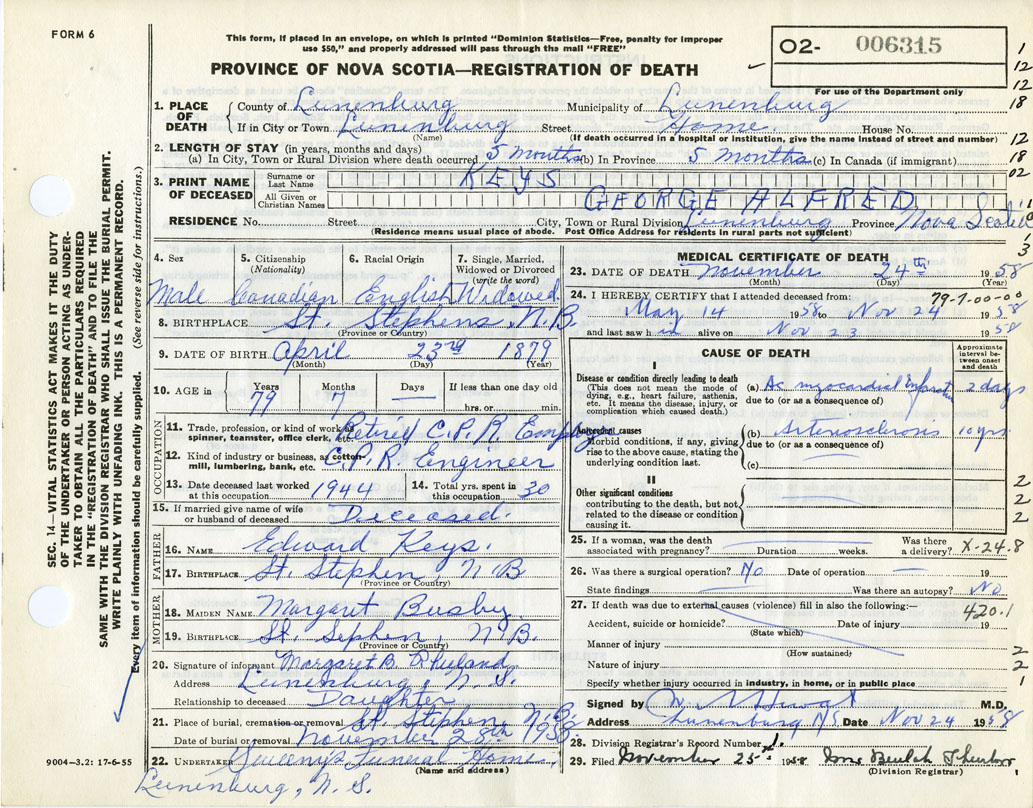 FORM 6
This form, if placed in an envelope, on which is printed "Dominion Statistics—Free, penalty for improper
use $50," and properly addressed will pass through the mail "FREE"
O2- 006315
For use of the Department only
PROVINCE OF NOVA SCOTIA—REGISTRATION OF DEATH
1. PLACE OF DEATH
County of Lunenburg Municipality of Lunenburg
If in City or Town Lunenburg Street Home. House No.
(Name) (If death occurred in a hospital or institution, give the name instead of street and number)
2. LENGTH OF STAY (in years, months and days)
(a) In City, Town or Rural Division where death occurred 5 months (b) In Province 5 months (c) In Canada (if immigrant)
3. PRINT NAME OF DECEASED
Surname or Last Name KEYS
All Given or Christian Names GEORGE ALFRED
RESIDENCE No. Street City, Town or Rural Division Lunenburg Province Nova Scotia
(Residence means usual place of abode. Post Office Address for residents in rural parts not sufficient)
4. Sex
Male
5. Citizenship (Nationality)
Canadian
6. Racial Origin
English
7. Single, Married, Widowed or Divorced (write the word)
Widowed.
8. BIRTHPLACE St. Stephens, N.B.
(Province or Country)
9. DATE OF BIRTH April 23rd 1879
(Month) (Day) (Year)
10. AGE in Years Months Days If less than one day old
79 7 — hrs. or min.
OCCUPATION
11. Trade, profession, or kind of work as spinner, teamster, office clerk, etc. C.P.R.
12. Kind of industry or business, as cotton-mill, lumbering, bank, etc. C.P.R. Engineer
13. Date deceased last worked at this occupation 1944
14. Total yrs. spent in this occupation 30
15. If married give name of wife or husband of deceased Deceased.
FATHER
16. NAME Edward Keys.
17. BIRTHPLACE St. Stephen, N.B
(Province or Country)
MOTHER
18. MAIDEN NAME Margaret Busby
19. BIRTHPLACE St. Sephen, N.B.
(Province or Country)
20. Signature of informant Margaret B.
Address Lunenburg, N.S.
Relationship to deceased Daughter
21. Place of burial, cremation or removal St Stephen, N.B.
Date of burial or removal November 28th 1958
22. UNDERTAKER Sweeny's Funeral Home,
(Name and address)
Lunenburg, N.S.
9004—3.2: 17-6-55
MEDICAL CERTIFICATE OF DEATH
23. DATE OF DEATH November 24th 1958
(Month) (Day) (Year)
24. I HEREBY CERTIFY that I attended deceased from: 79-7-00-00
May 14 1958 to Nov 24 1958
and last saw him alive on Nov 23 1958
CAUSE OF DEATH
Approximate interval between onset and death
I
Disease or condition directly leading to death
(This does not mean the mode of dying, e.g., heart failure, asthenia, etc. It means the disease, injury, or complication which caused death.)
(a) Ac myocardial Infarction 2 days
due to (or as a consequence of)
Antecedent causes
Morbid conditions, if any, giving rise to the above cause, stating the underlying condition last.
(b) Arteriosclerosis 10 yrs
due to (or as a consequence of)
(c)
II
Other significant conditions
contributing to the death, but not related to the disease or condition causing it.
25. If a woman, was the death associated with pregnancy? Duration weeks. Was there a delivery? X-24.8
26. Was there a surgical operation? No Date of operation — 19
State findings Was there an autopsy? No
27. If death was due to external causes (violence) fill in also the following:— 420.1
Accident, suicide or homicide? Date of injury 19
(State which)
Manner of injury
(How sustained)
Nature of injury
Specify whether injury occurred in industry, in home, or in public place
Signed by M.D.
Address Lunenburg NS. Date Nov 24 1958
28. Division Registrar's Record Number
29. Filed November 25 1958 Mrs Beulah
(Division Registrar)
SEC. 14—VITAL STATISTICS ACT MAKES IT THE DUTY
OF THE UNDERTAKER OR PERSON ACTING AS UNDER-
TAKER TO OBTAIN ALL THE PARTICULARS REQUIRED
IN THE "REGISTRATION OF DEATH" AND TO FILE THE
SAME WITH THE DIVISION REGISTRAR WHO SHALL ISSUE THE BURIAL PERMIT.
WRITE PLAINLY WITH UNFADING INK. THIS IS A PERMANENT RECORD.
Every item of information should be carefully supplied. (See reverse side for instructions.)
1
12
18
12
18
02
3
2
2
2
2
2
1